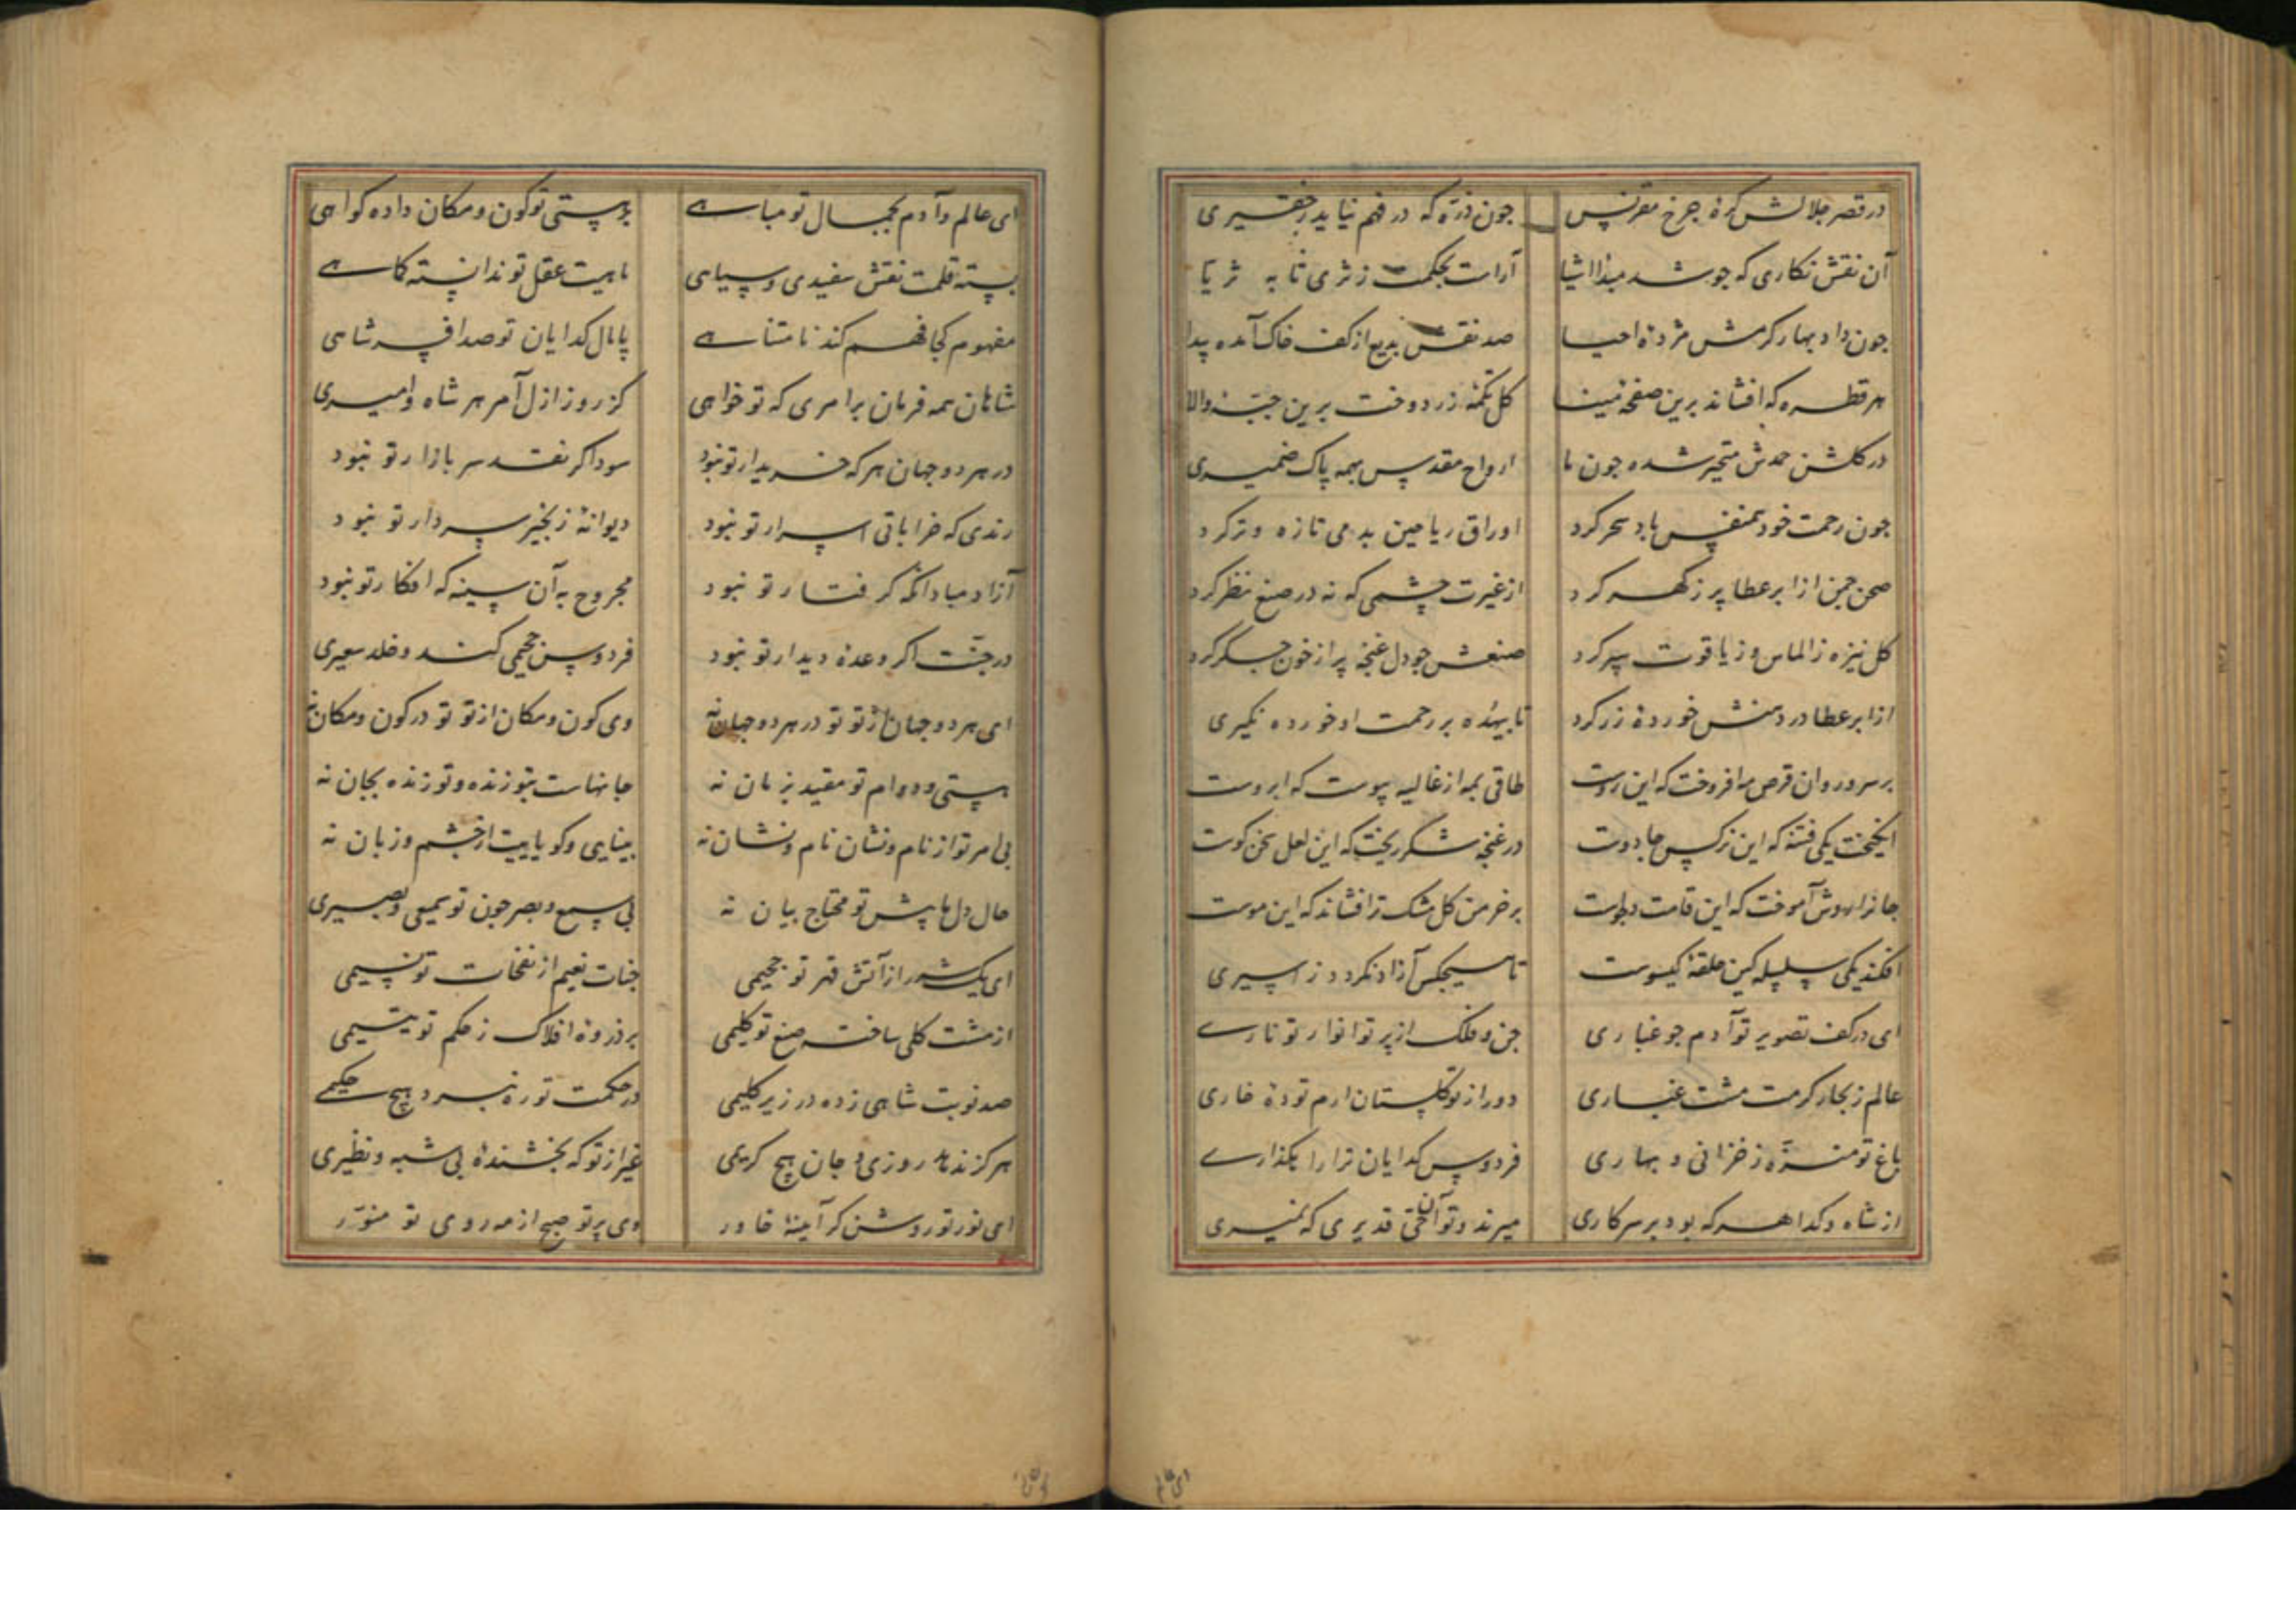 در قصر جلالش کرهٔ چرخ مقرنس چون ذرّه که در فهم نیاید ز حقیری
آن نقش نکاری که چو شد مبدا اشیا آراست بحکمت ز ثری تا به ثریا
جون داد بهار کرمش مژدهٔ احیا صد نقش بدیع از کف خاک آمده پیدا
هر قطره که افشاند برین صفحهٔ مینا کل تکمهٔ زر دوخت برین جبّهٔ والا
در کلشن حمدش متحیر شده جون ما ارواح مقدس بهمه پاک ضمیری
جون رحمت خود همنفس باد سحر کرد اوراق ریاحین بدمی تازه و تر کرد
صحن جمن از ابر عطا پر ز کهر کرد از غیرت چشمی که نه در صنع نظر کرد
کل نیزه ز الماس و ز یاقوت سپر کرد صنعش جو دل غنچه پر از خون جکر کرد
از ابر عطا در دهنش خوردهٔ زر کرد تا بیهده بر رحمت او خورده نکیری
بر سرو روان قرص مه افروخت که این روست طاقی بمه از غالیه پیوست که ابروست
انکیخت یکی فتنه که این نرکس جادوست در غنچه شکر ریخت که این لعل سخن کوست
جانرا روش آموخت که این قامت دلجوست بر خرمن کل مشک تر افشاند که این موست
افکند یکی سلسله کین حلقهٔ کیسوست تا هیجکس آزاد نکردد ز اسیری
ای در کف تصویر تو آدم جو غباری جن و ملک از پرتو انوار تو ناری
عالم ز بحار کرمت مشت غباری دور از تو کلستان ارم تودهٔ خاری
باغ تو منزّه ز خزانی و بهاری فردوس کدایان ترا راهکذاری
از شاه و کدا هر که بود بر سر کاری میرند و تو آن حیّ قدیری که نمیری
ای عالم
ای عالم و آدم بجمال تو مباهی بر هستی تو کون و مکان داده کواهی
بسته قلمت نقش سفیدی و سیاهی ماهیت عقل تو ندانسته کماهی
مفهوم کجا فهم کند نامتناهی پامال کدایان تو صد افسر شاهی
شاهان همه فرمان بر امری که تو خواهی کز روز ازل آمر هر شاه و امیری
در هر دو جهان هر که خریدار تو نبود سوداکر نقد سر بازار تو نبود
رندی که خراباتی اسرار تو نبود دیوانهٔ زنجیر سر دار تو نبود
آزاد مباد آنکه کرفتار تو نبود مجروح به آن سینه که افکار تو نبود
در جنّت اکر وعدهٔ دیدار تو نبود فردوس جحیمی کند و خلد سعیری
ای هر دو جهان از تو تو در هر دو جهان نه وی کون و مکان از تو تو در کون و مکان نه
هستی و دوام تو مقید بزمان نه جانهاست بتو زنده و تو زنده بجان نه
بی امر تو از نام و نشان نام و نشان نه بینایی و کویاییت از چشم و زبان نه
حال دل ما پیش تو محتاج بیان نه بی سمع و بصر جون تو سمیعی و بصیری
ای یک شرر از آتش قهر تو جحیمی جنات نعیم از نفحات تو نسیمی
از مشت کلی ساخته صنع تو کلیمی بر ذروهٔ افلاک ز حکم تو یتیمی
صد نوبت شاهی زده در زیر کلیمی در حکمت تو ره نبرد هیج حکیمی
هرکز ندهد روزی و جان هیج کریمی غیر از تو که بخشندهٔ بی شبه و نظیری
ای نور تو روشن کر آینهٔ خاور وی پرتو صبح از مه روی تو منوّر